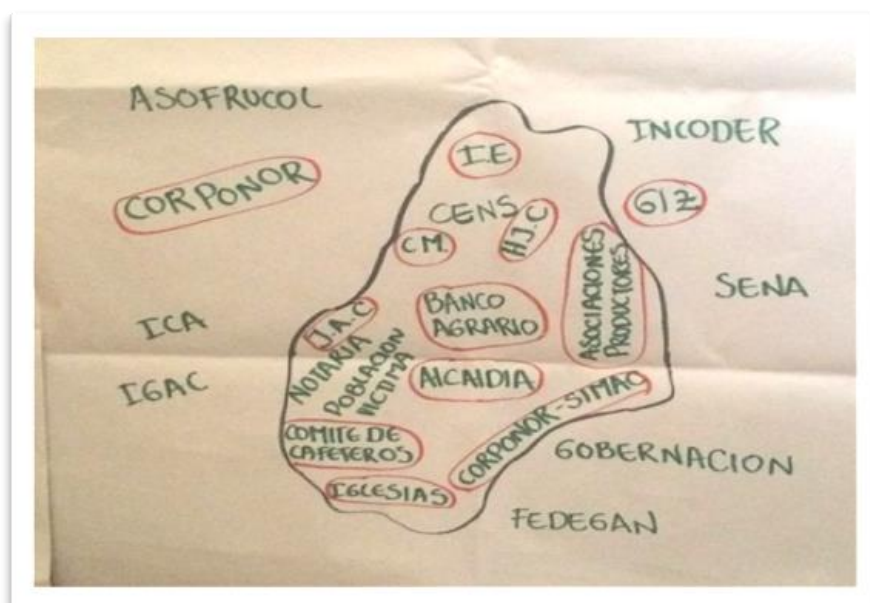 ASOFRUCOL
INCODER
I.E
CORPONOR
GIZ
CENS
H.J.C
C M.
ASOCIACIONES
PRODUCTORES
SENA
BANCO
AGRARIO
J.A.C
ICA
NOTARIA
POBLACION
VICTIMA
ALCALDIA
IGAC
CORPONOR-SIMAC
COMITE DE
CAFETEROS
GOBERNACION
IGLESIAS
FEDEGAN